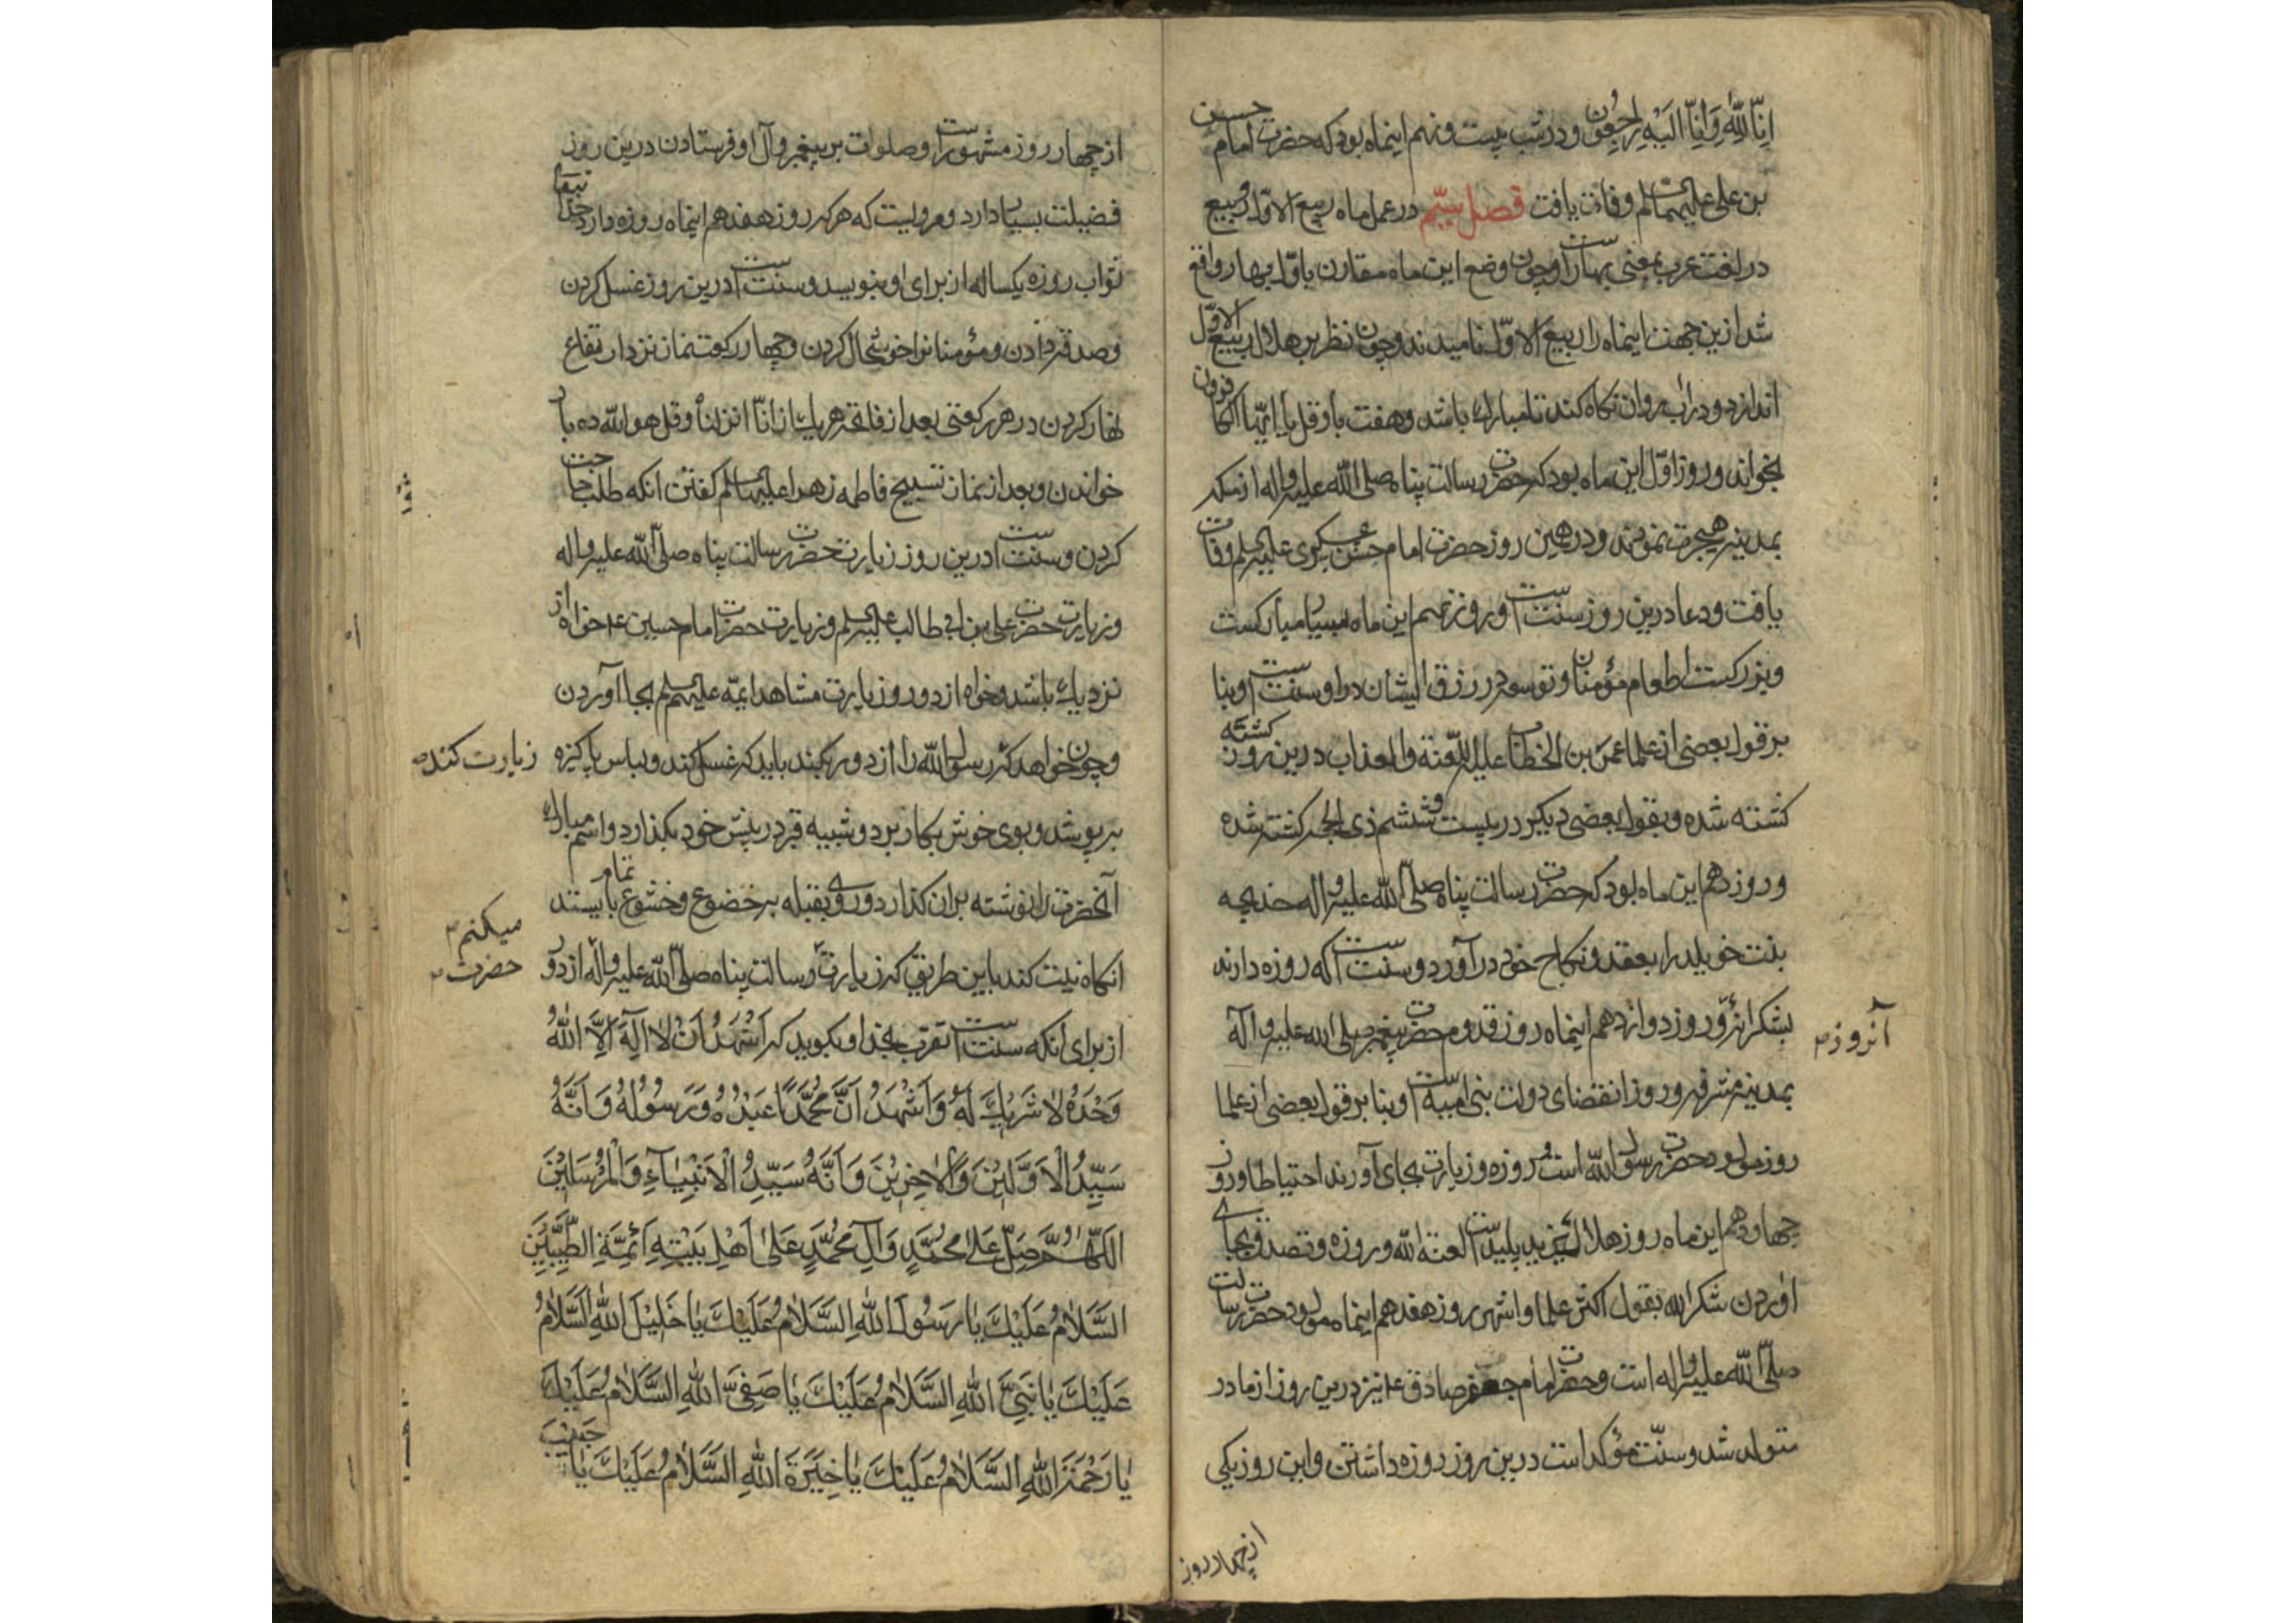 انّا للّه وانّا الیه راجعون ودر شب بیست ونهم اینماه بود که حضرت امام حسین
بن علی علیهما السلام وفات یافت فصل سیّم در عمل ماه ربیع الاوّل وربیع
در لغت عرب بمعنی بهار است وچون وضع این ماه مقارن باوّل بهار واقع
شد ازین جهت اینماه را ربیع الاوّل نامیدند وچون نظر بر هلال ربیع الاوّل
اندازد ودر آب روان نگاه کند تا مبارک باشد وهفت بار قل یا ایّها الکافرون
بخواند وروز اوّل این ماه بود که حضرت رسالت پناه صلی الله علیه واله از مکه
بمدینه هجرت نمودند ودر همین روز حضرت امام حسن عسکری علیه السلم وفات
یافت ودعا درین روز سنّت است وروز نهم این ماه بسیار مبارکست
وبزرکست اطعام مؤمنان وتوسعه در رزق ایشان دادن سنّت است وبنا
بر قول بعضی از علما عمر بن الخطاب علیه اللّعنة والعذاب درین روز کشته
کشته شده وبقول بعضی دیکر در بیست وششم ذی الحجه کشته شده
وروز دهم این ماه بود که حضرت رسالت پناه صلّی الله علیه واله خدیجه
بنت خویلد را بعقد ونکاح خود در آورد وسنّت است که روزه دارند
بشکرانه وروز دوازدهم اینماه روز قدوم حضرت پیغمبر صلی الله علیه وآله
آنروز
بمدینه مشرفه وروز انقضای دولت بنی امیّه است وبنا بر قول بعضی از علما
روز مولود حضرت رسول الله است وروزه وزیارت بجای آورند احتیاطا وروز
چهاردهم این ماه روز هلاک یزید پلید است لعنة الله وروزه وتصدق بجای
آوردن شکرا لله بقول اکثر علما واشهر روز هفدهم اینماه مولود حضرت رسالت
صلّی الله علیه واله است وحضرت امام جعفر صادق ع نیز درین روز از مادر
متولد شد وسنّت مؤکد است درین روز روزه داشتن واین روز یکی
از چهار روز
از چهار روز مشهور است وصلوات بر پیغمبر وآل او فرستادن درین روز
فضیلت بسیار دارد ومرویست که هرکه روز هفدهم اینماه روزه دارد
ثواب روزه یکساله از برای او بنویسد وسنّت است درین روز غسل کردن
وصدقه دادن ومؤمنانرا خوشحال کردن وچهار رکعت نماز نزد ارتفاع
نهار کردن در هر رکعتی بعد از فاتحه هر یک از انّا انزلناه وقل هو الله ده بار
خواندن وبعد از نماز تسبیح فاطمه زهرا علیها السلم کفتن انکه طلب حاجت
کردن وسنّت است درین روز زیارت حضرت رسالت پناه صلّی الله علیه واله
وزیارت حضرت علی بن ابی طالب علیه السلم وزیارت حضرت امام حسین ع خواه از
نزدیک باشد وخواه از دور وزیارت مشاهد ائمّه علیهم السلم بجا آوردن
وچون خواهد که رسول الله را از دور بکند باید که غسل کند ولباس پاکیزه
زیارت کند
بر پوشد وبوی خوش بکار برد وشبیه قبر در پیش خود بکذارد واسم مبارک
آنحضرت را نوشته بران کذارد وروی بقبله بر خضوع وخشوع تمام بایستد
انکاه نیّت کند باین طریق که زیارت رسالت پناه صلّی الله علیه واله از دور
میکنم
حضرت
از برای انکه سنّت است تقرب بخدا وبکوید که اَشْهَدُ اَنْ لا اِلهَ اِلَّا اللهُ
وَحْدَهُ لا شَرِیْكَ لَهُ وَاَشْهَدُ اَنَّ مُحَمَّدًا عَبْدُهُ وَرَسُوْلُهُ وَاَنَّهُ
سَیِّدُ الْاَوَّلِیْنَ وَالْاٰخِرِیْنَ وَاَنَّهُ سَیِّدُ الْاَنْبِیاءِ وَالْمُرْسَلِیْنَ
اللّهُمَّ صَلِّ عَلٰی مُحَمَّدٍ وَآلِ مُحَمَّدٍ عَلٰی اَهْلِ بَیْتِهِ اَئِمَّةِ الطَّیِّبِیْنَ
السَّلامُ عَلَیْكَ یا رَسُوْلَ اللهِ السَّلامُ عَلَیْكَ یا خَلِیْلَ اللهِ السَّلامُ
عَلَیْكَ یا نَبِیَّ اللهِ السَّلامُ عَلَیْكَ یا صَفِیَّ اللهِ السَّلامُ عَلَیْكَ
یا رَحْمَةَ اللهِ السَّلامُ عَلَیْكَ یا خِیَرَةَ اللهِ السَّلامُ عَلَیْكَ یا حَبِیْبَ